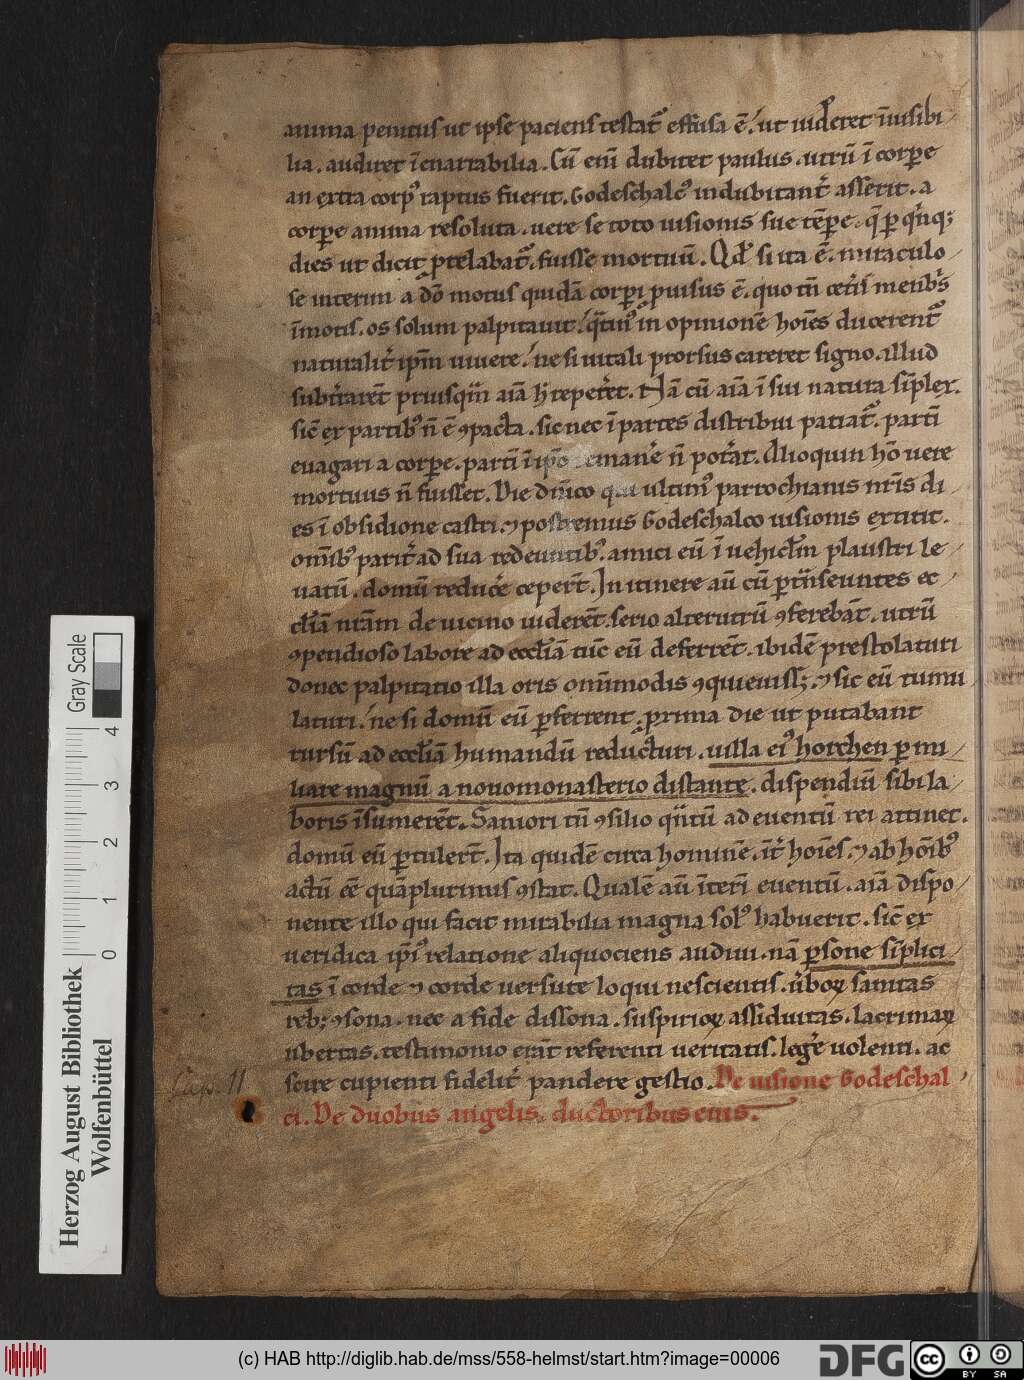 anima penitus ut ipse paciens testat᷑ effusa ē. ut uideret ī́uisibi
lia. audiret īenarrabilia. Cū eni dubitet paulus. utrū ī corꝑe
an extra corpꝰ raptus fuerit. Godeschalcꝰ indubitant᷑ asserit. a
corꝑe anima resoluta. uere se toto uisionis sue tēꝑe. q̄ ꝑ qͥnqꝫ
dies ut dicit ꝓtelabat᷑. fuisse mortuū. Qd̓ si ita ē. miraculo
se interim a dō motus quidā corꝑi ꝓuisus ē. quo tn̄ cet᷑is menbͥs
īmotis. os solum palpitauit. q̄tinꝰ in opinionē hoīes ducerent᷑
naturalit᷑ ipm̄ uiuere. ne si uitali prorsus careret signo. allud
subt᷑rarēt priusqͣm aīa h̓ repet᷑et. Nā cū aīa ī sui natura sīplex.
sic̄ ex partibꝰ n̄ ē ꝯpacta. sic nec ī partes distribui patiat᷑. partī
euagari a corꝑe. partī ī ipō remane᷑ n̄ pot᷑at. Alioquin hō uere
mortuus n̄ fuisset. Die dn̄ico qui ultimꝰ parrochianis nr̄is di
es ī obsidione castri. ⁊ postremus Godeschalco uisionis extitit.
omībꝰ parit᷑ ad sua redeuntibꝰ. amici eū ī uehicl̄m plaustri le
uatū. domū reduce᷑ ceper̄t. In itinere aū cū ꝑtͣnseuntes ec
cl̄iā nr̄am de uicino uiderēt. serio alterutrū ꝯferebāt. utrū
ꝯpendioso labore ad eccl̄iā tūc eū deferrēt. ibidē prestolaturi
donec palpitatio illa oris om̄imodis ꝯquieuissꝫ. ⁊ sic eū tumu
laturi. ne si domū eū ꝑferrent. prima die ut putabant
rursū ad eccl̄iā humandū reducturi. uilla eiꝰ horchen ꝑ mi
liare magnū a nouomonasterio distante. dispendiū sibi la
boris īsumerēt. Saniori tn̄ ꝯsilio qͣntū ad euentū rei attinet.
domū eū ꝑtuler̄t. Ita quidē circa hominē. īt᷑ hoīes. ⁊ ab hoībꝰ
actū eē quāplurimis ꝯstat. Qualē aū īterī euentū. aīā dispo
nente illo qui facit mirabilia magna solꝰ habuerit. sic̄ ex
ueridica ipīꝰ relatione aliquociens audiui. nā ꝑsone sīplici
tas ī corde ⁊ corde uersute loqui nescientis. u᷑boꝝ sanitas
rebꝫ ꝯsona. nec a fide dissona. suspirioꝝ assiduitas. lacrimaꝝ
ubertas. testimonio erāt referenti ueritatis. lege᷑ uolenti. ac
scire cupienti fidelit᷑ pandere gestio. De uisione Godeschal
ci. De duobus angelis ductoribus eius.
Cap. II
Gray Scale
0 1 2 3 4
Herzog August Bibliothek
Wolfenbüttel
(c) HAB http://diglib.hab.de/mss/558-helmst/start.htm?image=00006
DFG
cc
BY SA